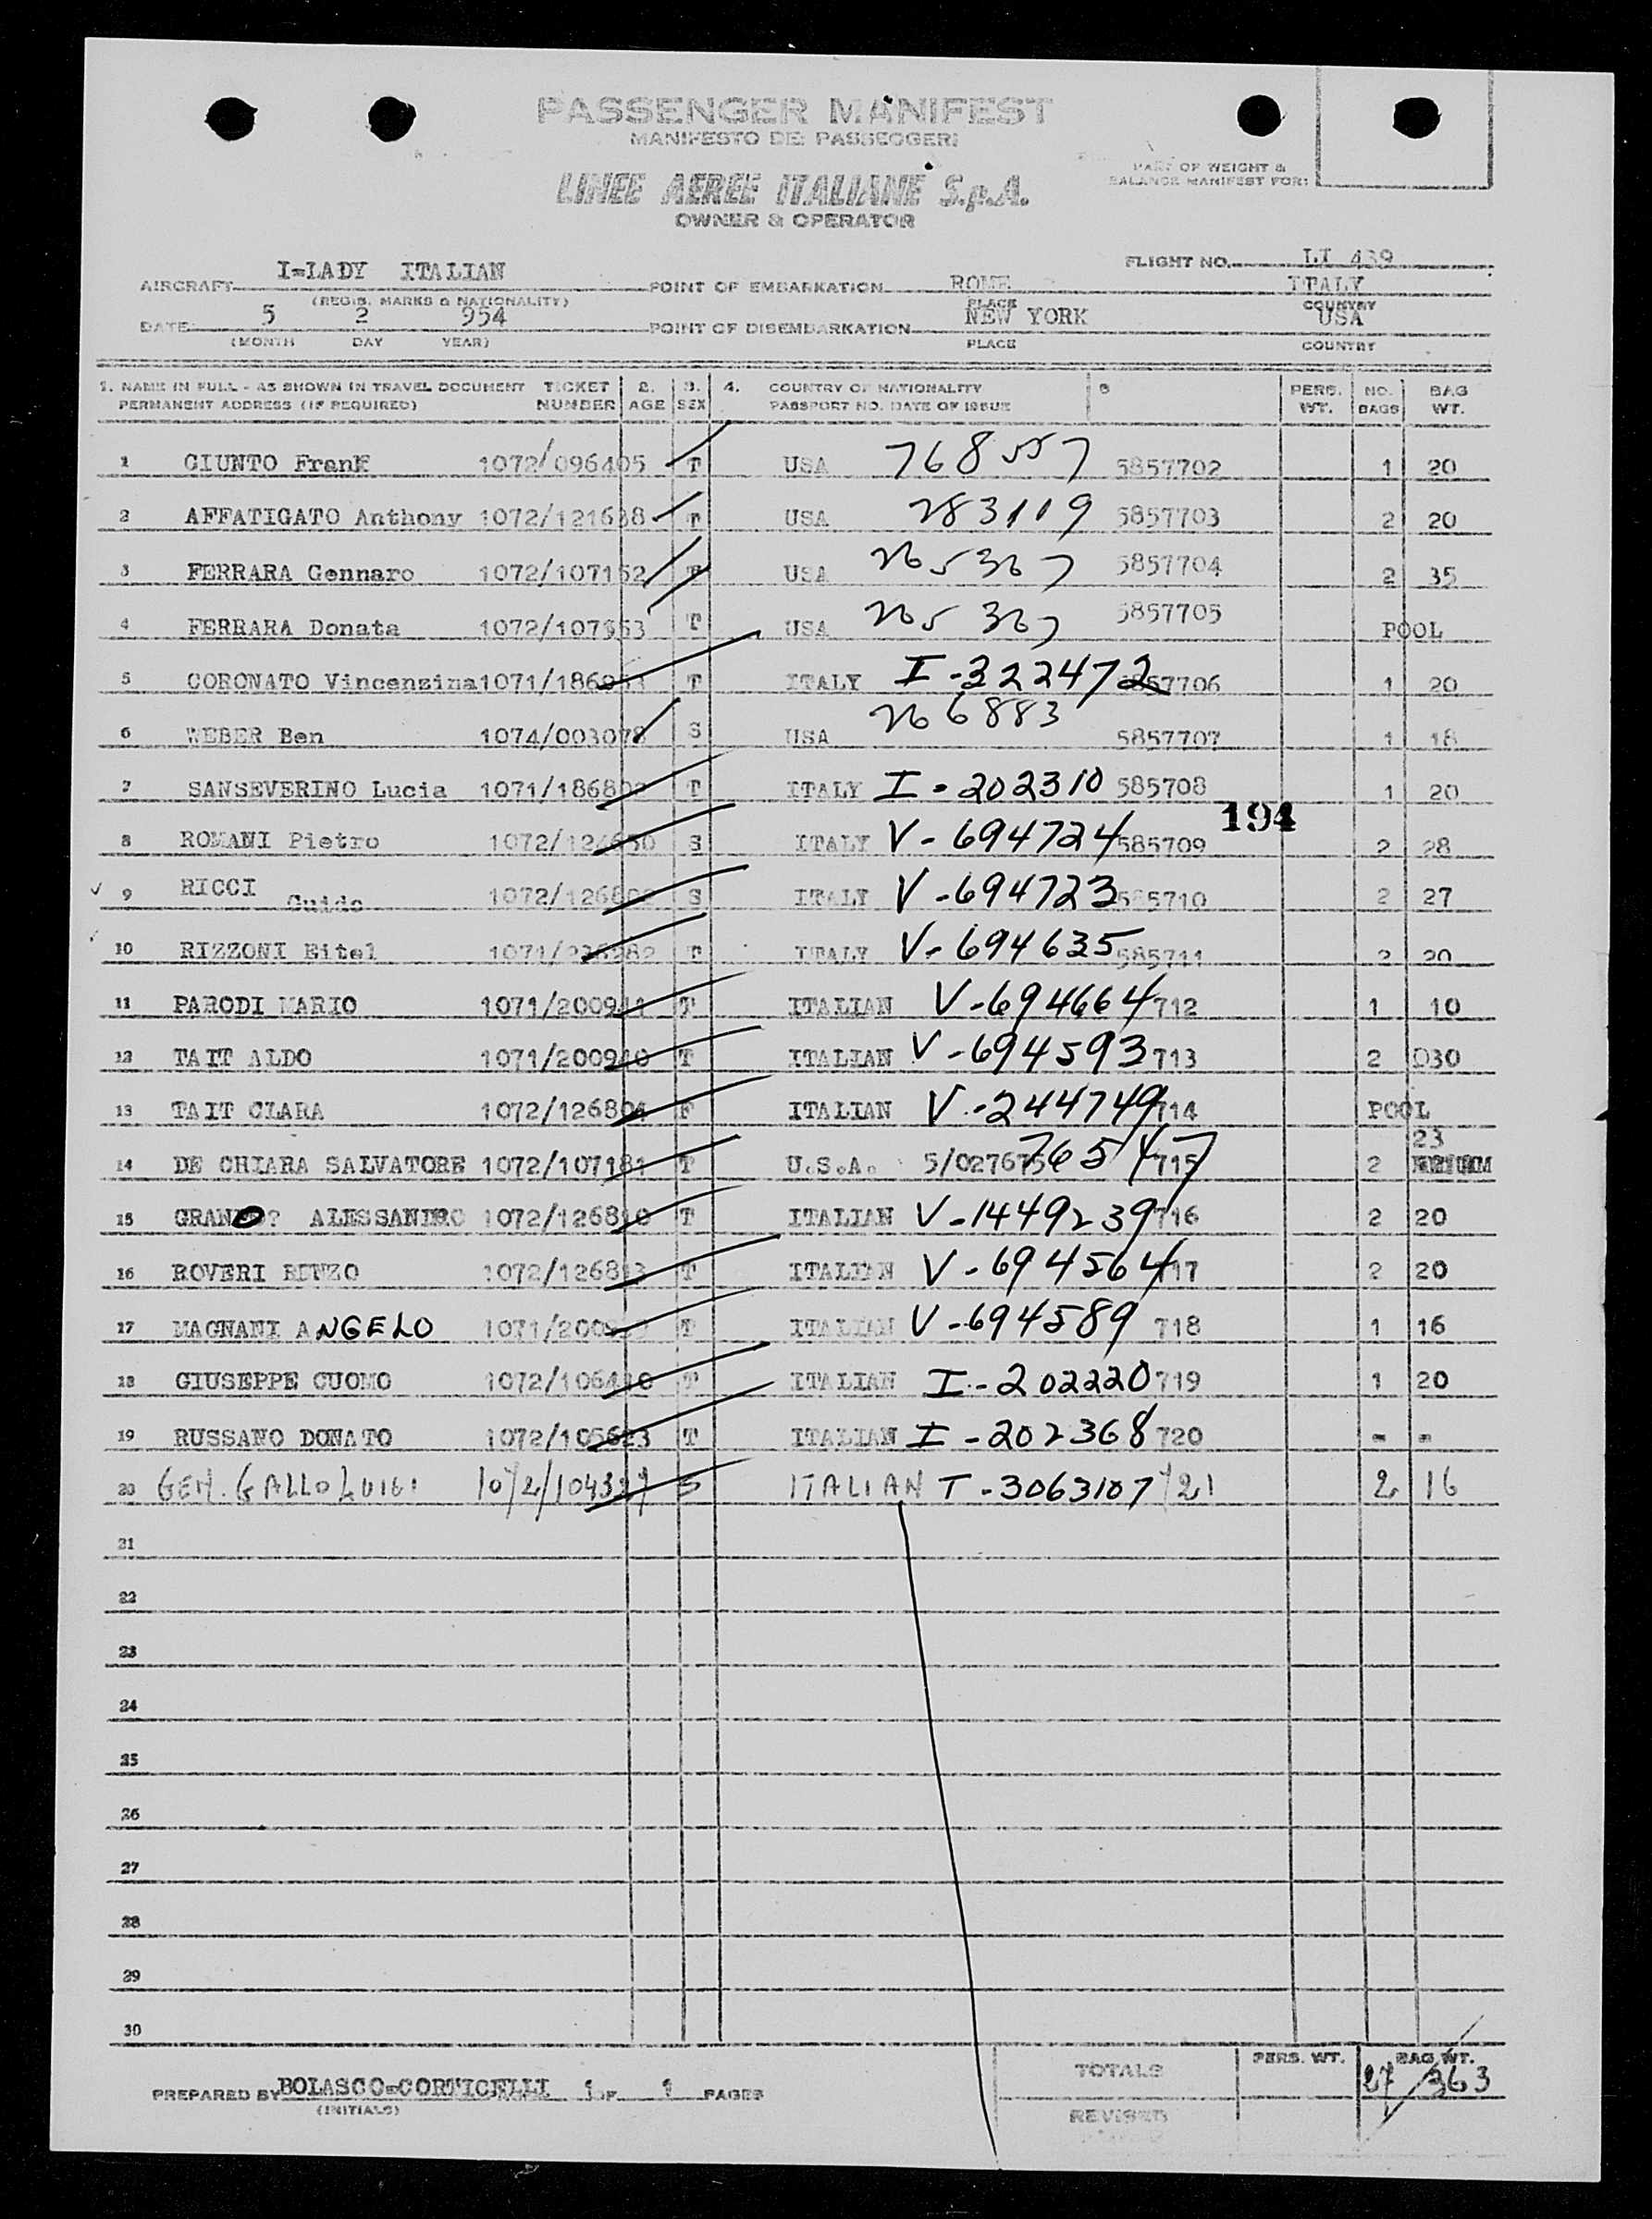 PASSENGER MANIFEST
MANIFESTO DEI PASSEGGERI
PART OF WEIGHT &
BALANCE MANIFEST FOR:
LINEE AEREE ITALIANE S.p.A.
OWNER & OPERATOR
FLIGHT NO. LI 439
AIRCRAFT I=LADY ITALIAN POINT OF EMBARKATION ROME ITALY
(REGIS. MARKS & NATIONALITY) PLACE COUNTRY
DATE 5 2 954 POINT OF DISEMBARKATION NEW YORK USA
(MONTH DAY YEAR) PLACE COUNTRY
1. NAME IN FULL - AS SHOWN IN TRAVEL DOCUMENT TICKET 2. 3. 4. COUNTRY OF NATIONALITY 5 PERS. NO. BAG
PERMANENT ADDRESS (IF REQUIRED) NUMBER AGE SEX PASSPORT NO. DATE OF ISSUE WT. BAGS WT.
1 GIUNTO Frank 1072/096405 T USA 768557 5857702 1 20
2 AFFATIGATO Anthony 1072/121638 T USA 283119 5857703 2 20
3 FERRARA Gennaro 1072/107152 T USA 265367 5857704 2 35
4 FERRARA Donata 1072/107353 T USA 265367 5857705 POOL
5 CORONATO Vincenzina T ITALY I-322472 5857706 1 20
6 WEBER Ben 1074/003078 S USA 266883 5857707 1 18
7 SANSEVERINO Lucia T ITALY I-202310 585708 1 20
194
8 ROMANI Pietro S ITALY V-694724 585709 2 28
9 RICCI Guido S ITALY V-694723 585710 2 27
10 RIZZONI Eitel T ITALY V-694635 585711 2 20
11 PARODI MARIO 1071/200941 T ITALIAN V-694664 712 1 10
12 TAIT ALDO 1071/200940 T ITALIAN V-694593 713 2 030
13 TAIT CLARA 1072/126804 F ITALIAN V-244749 714 POOL
23
14 DE CHIARA SALVATORE 1072/107181 T U.S.A. 715 2
15 ALESSANDRO 1072/126810 T ITALIAN V-1449239 716 2 20
16 ROVERI RENZO 1072/126813 T ITALIAN V-694564 717 2 20
17 MAGNANI ANGELO T ITALIAN V-694589 718 1 16
18 GIUSEPPE CUOMO T ITALIAN I-202220 719 1 20
19 RUSSANO DONATO T ITALIAN I-202368 720 - -
20 GEN. GALLO LUIGI S ITALIAN T-3063107 721 2 16
21
22
23
24
25
26
27
28
29
30
PREPARED BY BOLASCO=CORTICELLI 1 OF 1 PAGES
(INITIALS)
TOTALS PERS. WT. BAG WT.
27 363
REVISED